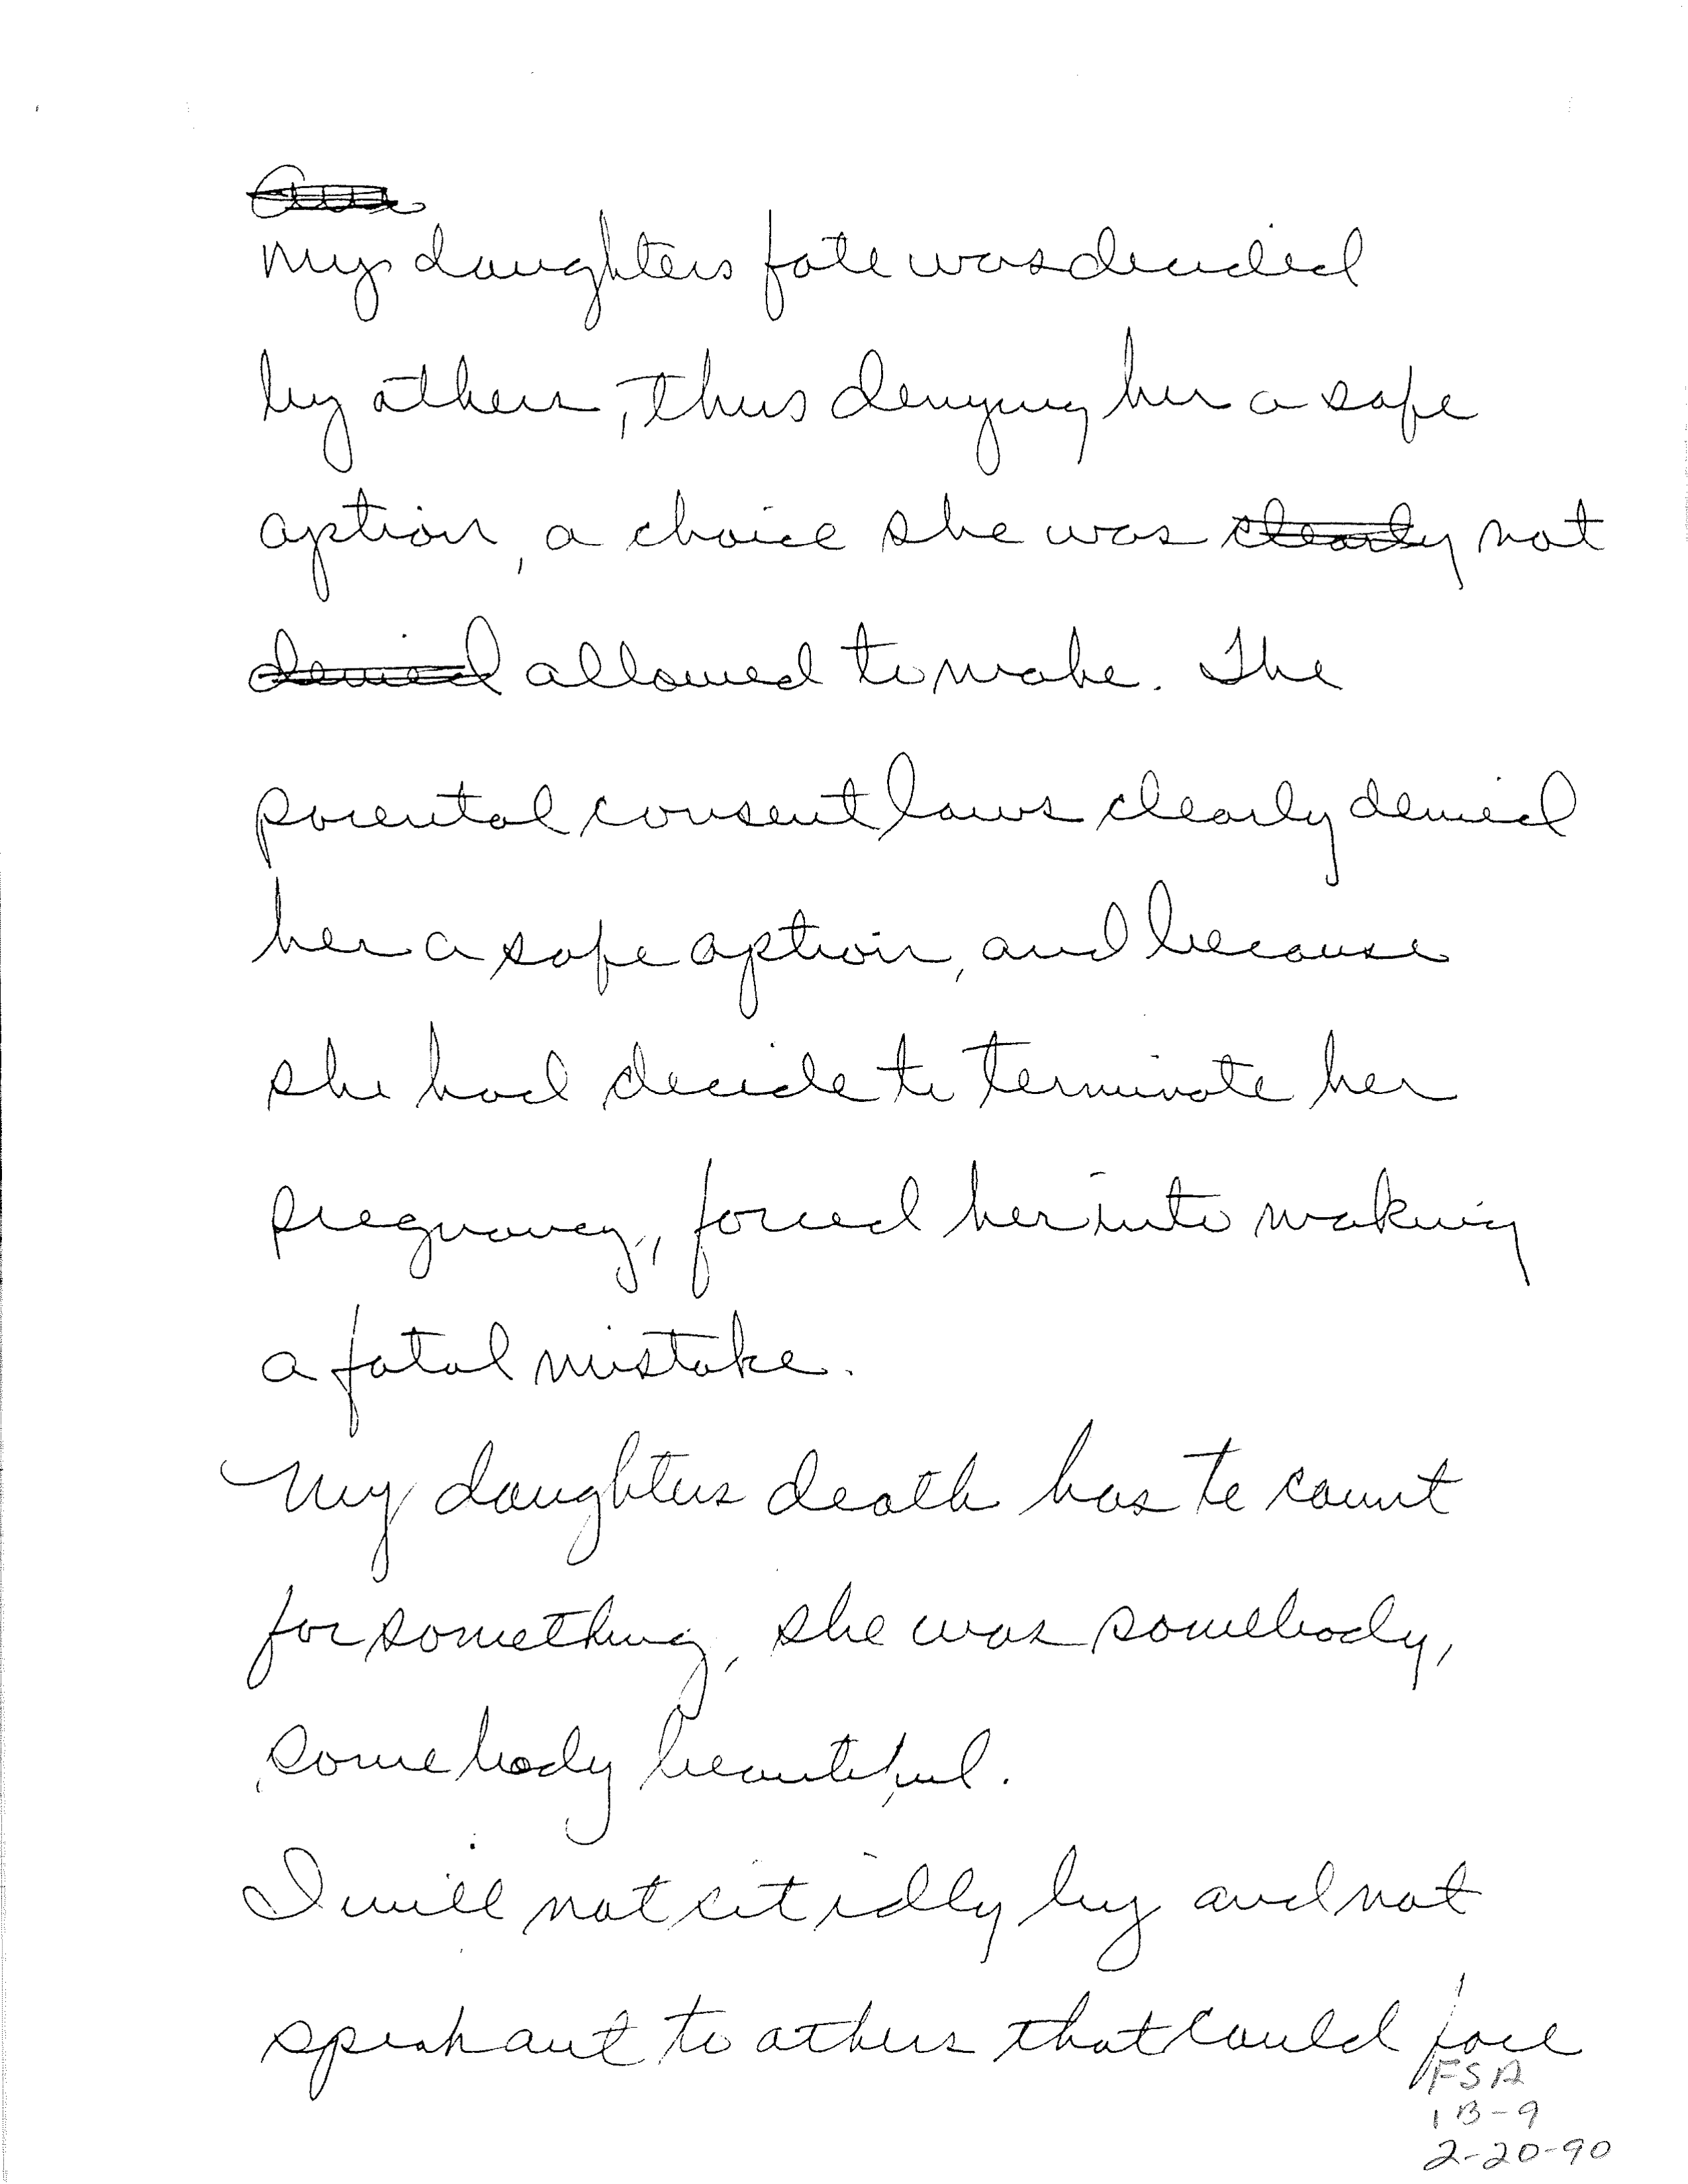 My daughters fate was decided
by others, thus denying her a safe
option, a choice she was clearly not
denied allowed to make. The
parental consent laws clearly denied
her a safe option, and because
she had decide to terminate her
pregnancy, forced her into making
a fatal mistake.
My daughters death has to count
for something, she was somebody,
somebody beautiful.
I will not sit idly by and not
speak out to others that could face
FSA
1B-9
2-20-90